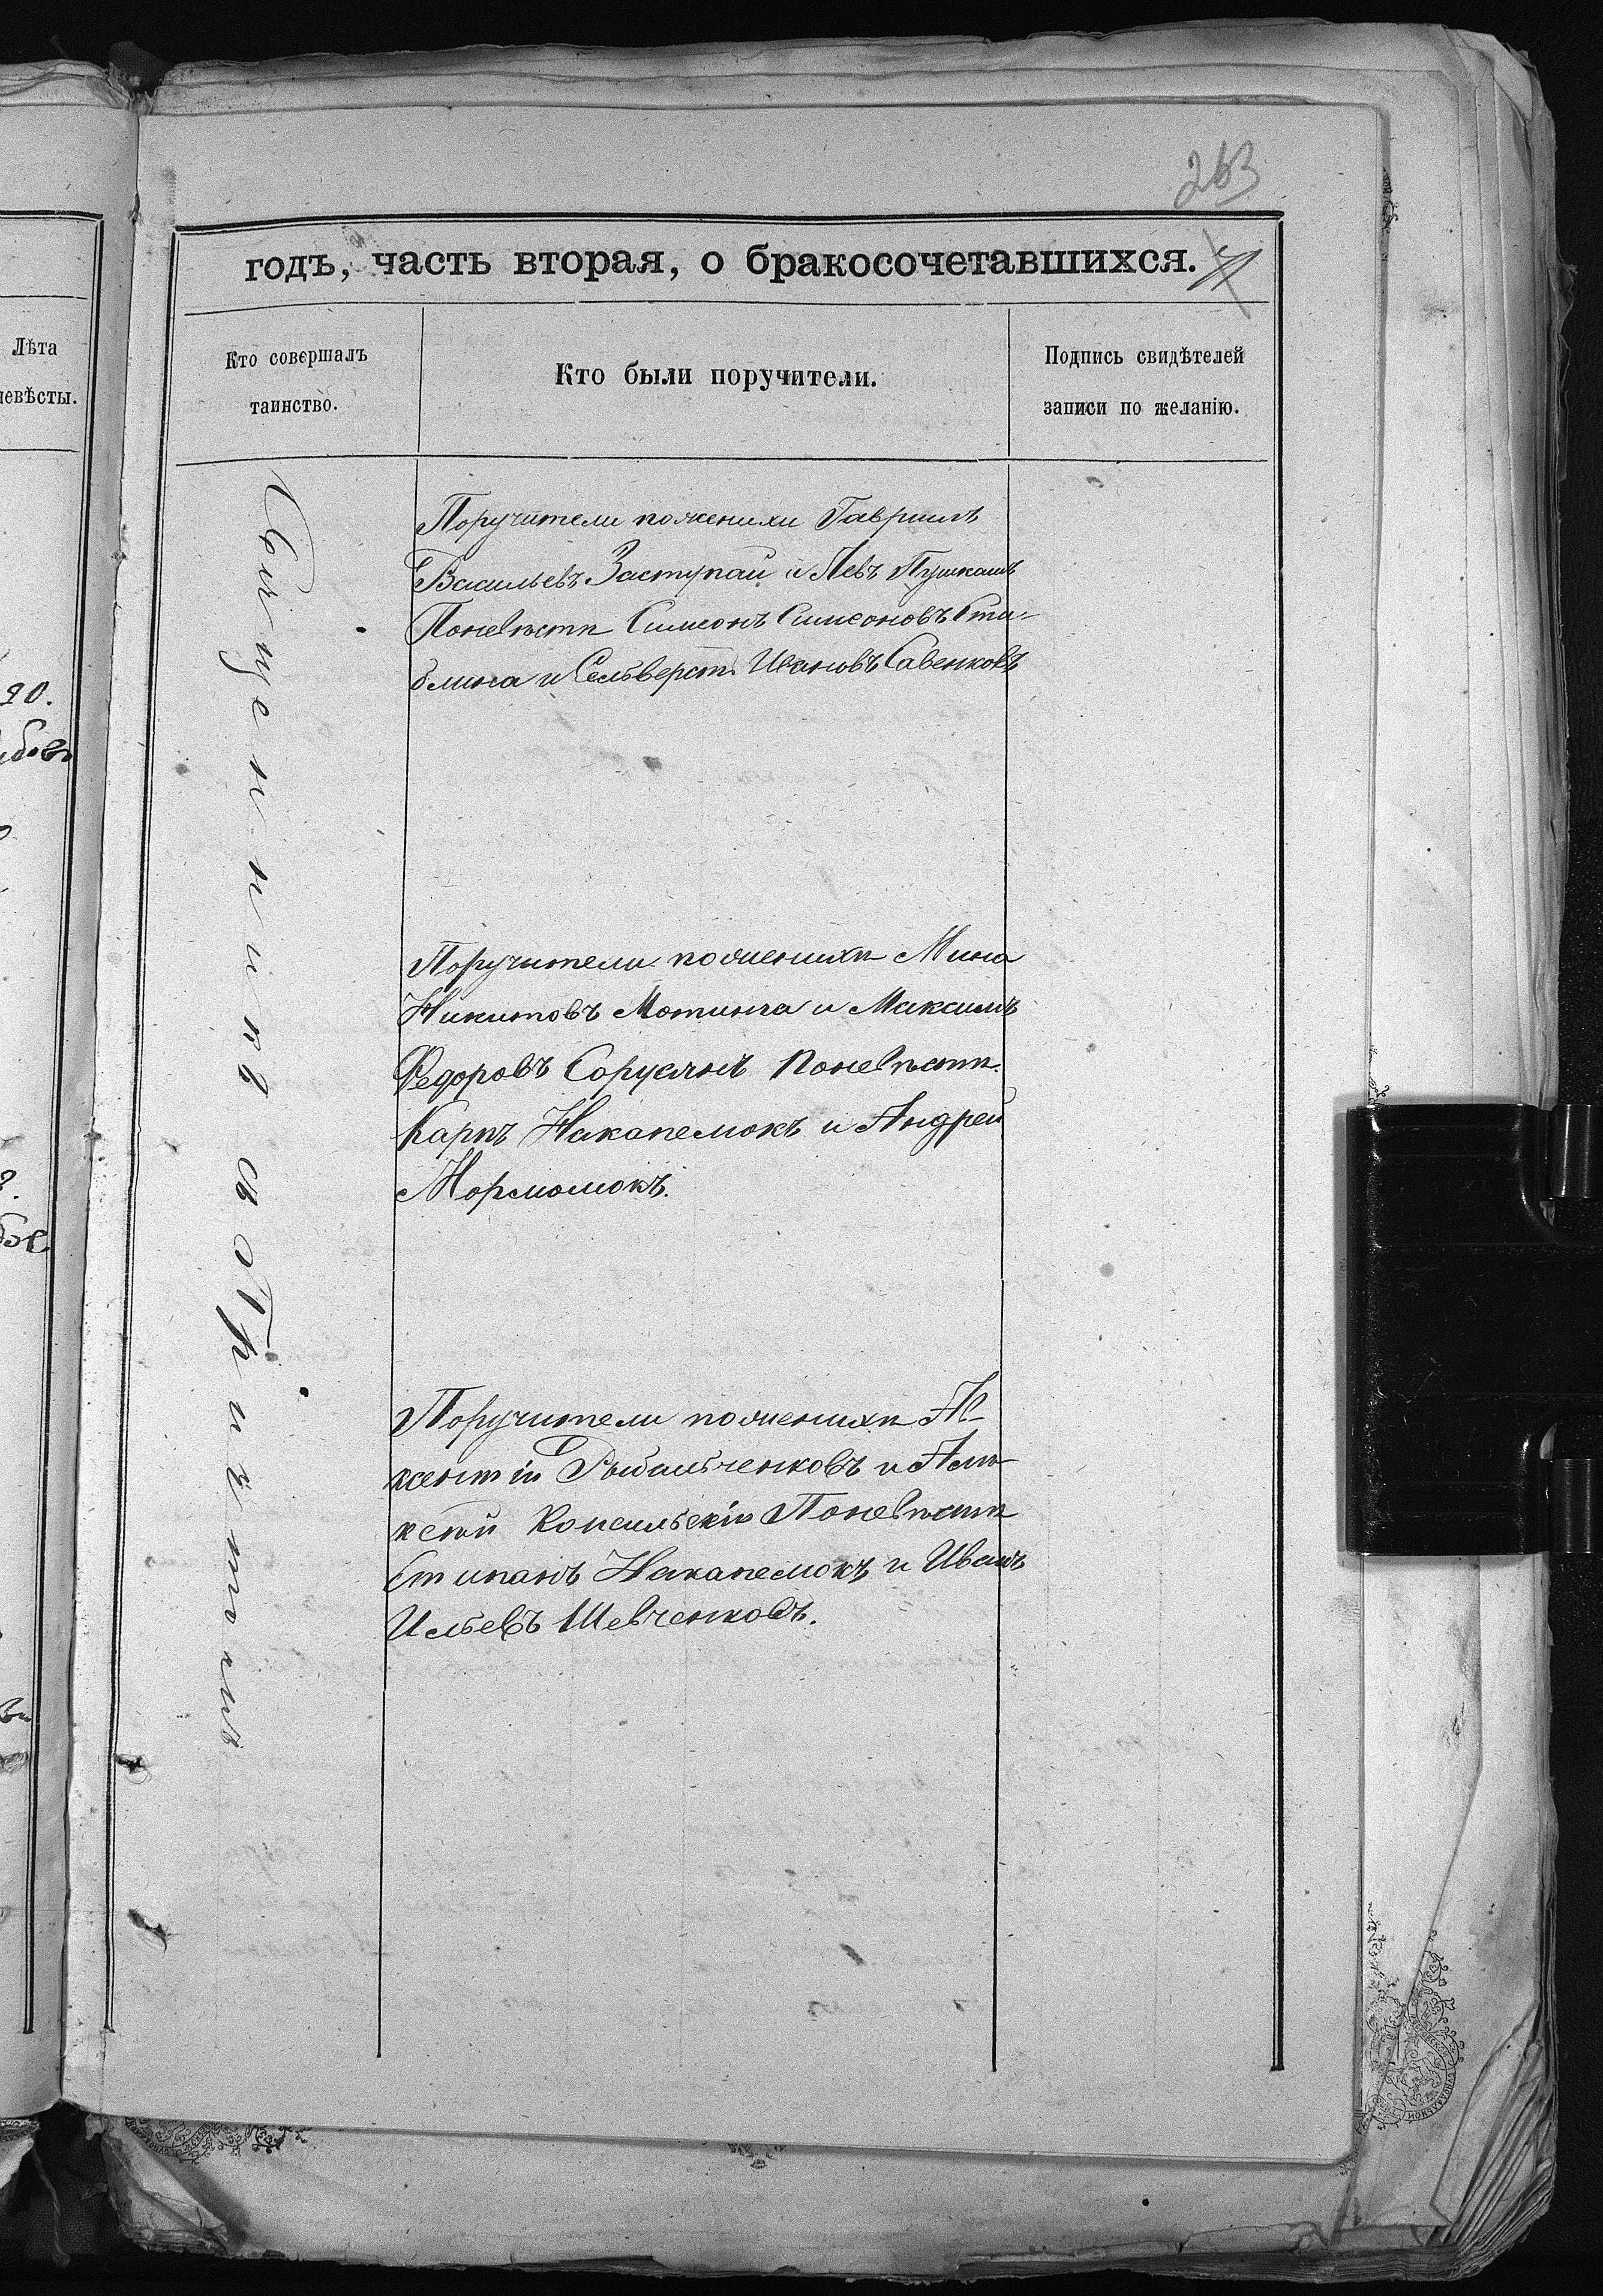 263
годъ, часть вторая, о бракосочетавшихся.
Лѣта
невѣсты.
Кто совершалъ
таинство.
Кто были поручители.
Подпись свидѣтелей
записи по желанію.
Священникъ
Поручители поженихи Гавриилъ
Васильевъ Заступай и Левъ Пушкашъ
Поневѣстѣ Симеонъ Симеоновъ Сти-
блина и Сельверст Ивановъ Савенковъ
Поручители поженихѣ Мина
Никитовъ Мотинга и Максимъ
Федоровъ Поневѣстѣ
Карпъ Накапелюкъ и Андрей
Поручители поженихѣ А-
ксентій Рыбальченковъ и Алѣ-
ксѣй Копсильскій Поневѣстѣ
Стипанъ Накапелюкъ и Иванъ
Ильевъ Шевченковъ.
20.